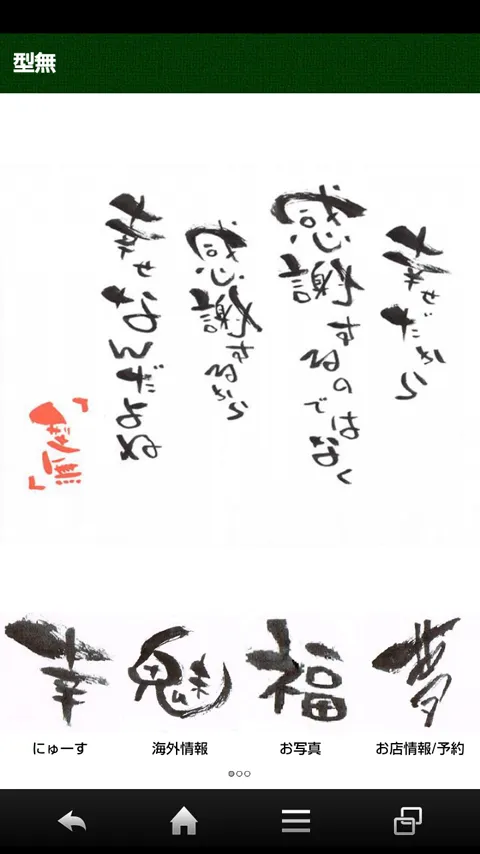 型無
幸せだから
感謝するのではなく
感謝するから
幸せなんだよね
「型無」
幸
魅
福
夢
にゅーす
海外情報
お写真
お店情報/予約